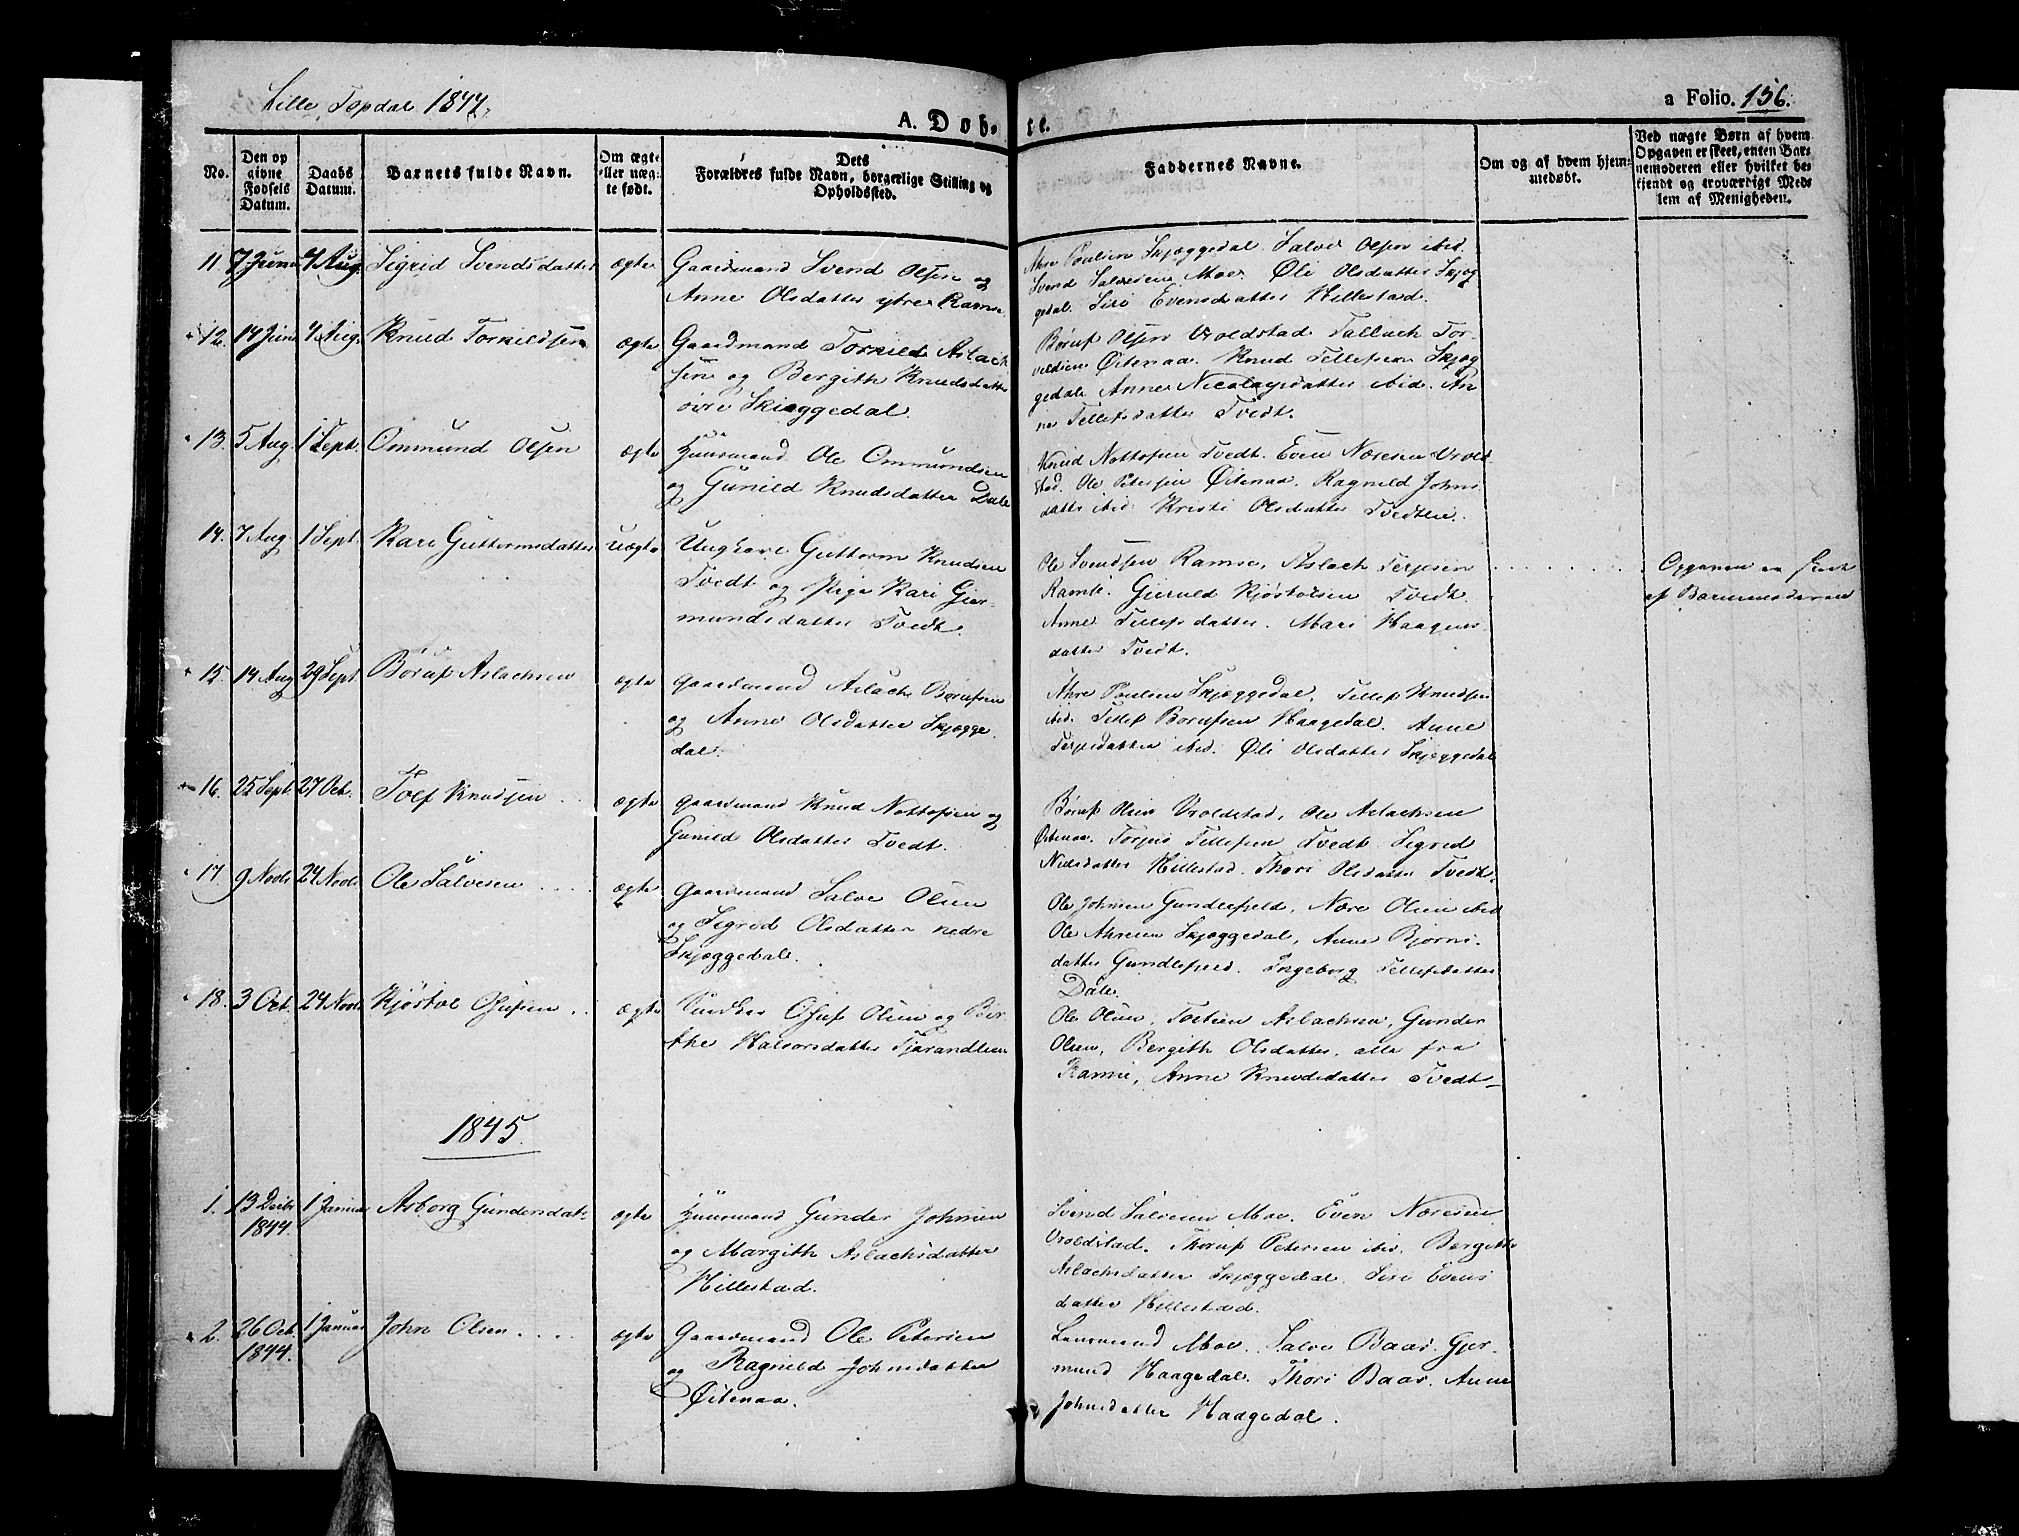 Lille Topdal 1844.
a Folio. 156.
A. Døb-
te.
No.
Den op
givne
Fødsels
Datum.
Daabs
Datum.
Barnets fulde Navn.
Om ægte
eller uæg-
te født.
Dets
Forældres fulde Navn, borgerlige Stilling og
Opholdssted.
Faddernes Navne.
Om og af hvem hjem-
medøbt.
Ved uægte Børn af hvem
Opgaven er skeet, enten Bar-
nemoderen eller hvilket be-
kjendt og troværdigt Med-
lem af Menigheden.
11 7 Juni 4 Aug. Sigrid Svendsdatter ægte Gaardmand Svend Olsen og
Anne Olsdatter ytre Ramse
Ahre Poulsen Skjæggedal. Salve Olsen ibid.
Svend Salvesen Moe. Øli Olsdatter Skjæg
gedal. Siri Evensdatter Hillestad.
12. 14 Juni 4 Aug. Knud Torkildsen ægte Gaardmand Torkild Aslach
sen og Bergith Knudsdatter
øvre Skjæggedal
Børuf Olsen Vroldstad. Tallach Tor-
vildsen Øitenaa. Knud Tellefsen Skjæg
gedal. Anne Nicolaysdatter ibid. An
ne Tellefsdatter Tvedt.
13. 5 Aug. 1 Sept. Ommund Olsen ægte Huusmand Ole Ommundsen
og Gunild Knudsdatter Dale
Knud Nottofsen Tvedt. Even Næresen Vrold-
stad. Ole Petersen Øitenaa. Ragnild Johns
datter ibid. Kristi Olsdatter Tvedtlie.
14. 7 Aug 1 Sept. Kari Guttormsdatter uægte Ungkarl Guttorm Knudsen
Tvedt og Pige Kari Gjer-
mundsdatter Tvedt.
Ole Svendsen Ramse, Aslach Terjesen
Ramse. Gjeruld Kjøstolsen Tvedt.
Anne Tellefsdatter. Mari Haagens
datter Tvedt.
Opgaven er skeet
af Barnemoderen
15. 14 Aug 29 Sept. Børuf Aslachsen ægte Gaardmand Aslach Børufsen
og Anne Olsdatter Skjægge
dal.
Ahre Poulsen Skjæggedal, Tellef Knudsen
ibid. Tellef Børufsen Haagedal. Anne
Terjesdatter ibid. Øli Olsdatter Skjæggedal
16. 25 Sept. 27 Oct. Tolf Knudsen ægte Gaardmand Knud Nottofsen og
Gunild Olsdatter Tvedt.
Børuf Olsen Vroldstad, Ole Aslachsen
Øitenaa. Torjus Tellefsen Tvedt. Sigrid
Nielsdatter Hillestad. Thori Olsdatter Tvedt.
17 9 Novb 24 Novb. Ole Salvesen ægte Gaardmand Salve Olsen
og Sigrid Olsdatter nedre
Skjæggedal.
Ole Johnsen Gundersfjeld, Nære Olsen ibid
Ole Ahresen Skjæggedal, Anne Bjørns-
datter Ingeborg Tellefsdatter
Dale.
18. 3 Oct. 24 Novb. Kjøstol Osufsen ægte Osuf Olsen og Bir-
the Halvorsdatter Tjørandlien
Ole Olsen, Tostien Aslachsen, Gunder
Olsen, Bergith Olsdatter, alle fra
Ramse, Anne Knudsdatter Tvedt
1845.
1. 13 Decbr 1 Januar Asborg Gundersdat- ægte Huusmand Gunder Johnsen
1844.
og Margith Aslachsdatter
Hillestad.
Svend Salvesen Moe. Even Næresen
Vroldstad. Thoruf Petersen ibid. Bergith
Aslachsdatter Skjæggedal. Siri Evens
datter Hillestad.
2. 26 Oct. 1 Januar John Olsen ægte Gaardmand Ole Petersen
1844.
og Ragnild Johnsdatter
Øitenaa.
Lensmand Moe. Salve Baas. Gjer-
mund Haagedal. Thori Baas. Anne
Johnsdatter Haagedal.